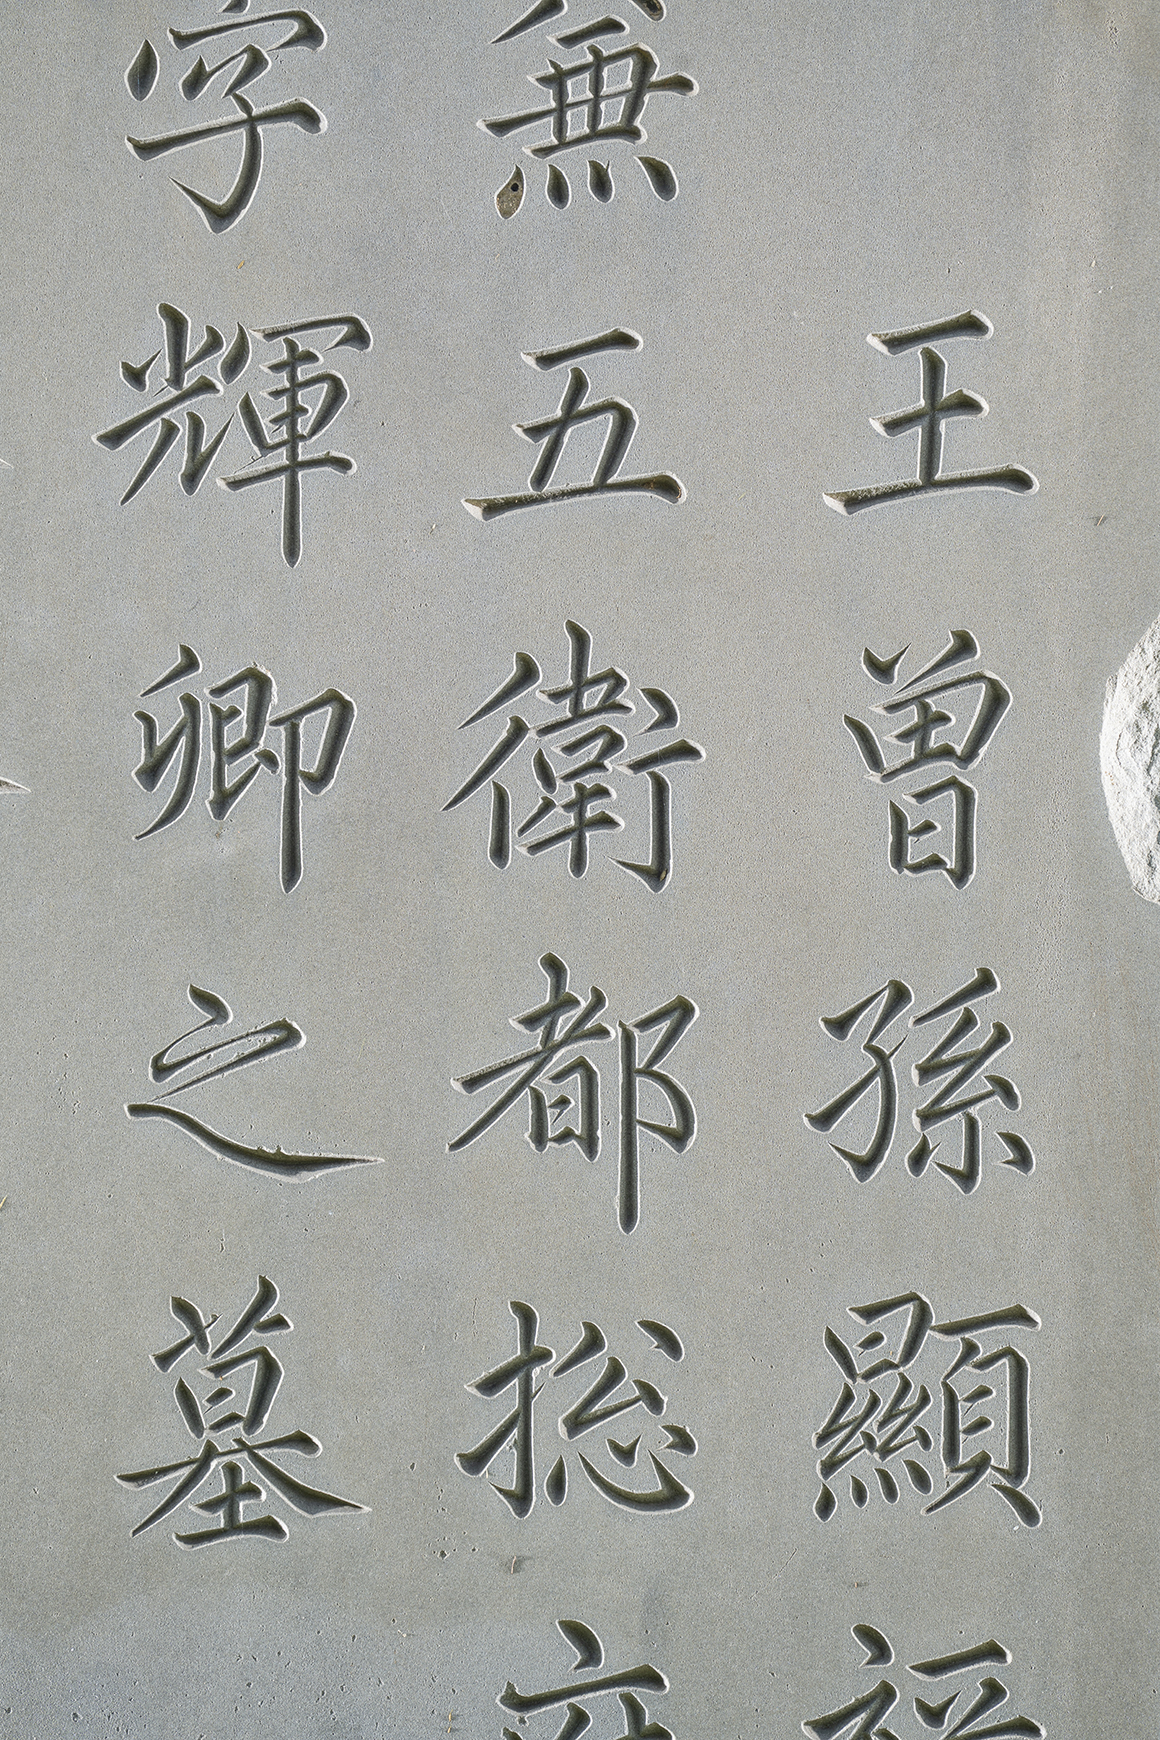 王曾孫顯
兼五衛都捴
字輝卿之墓